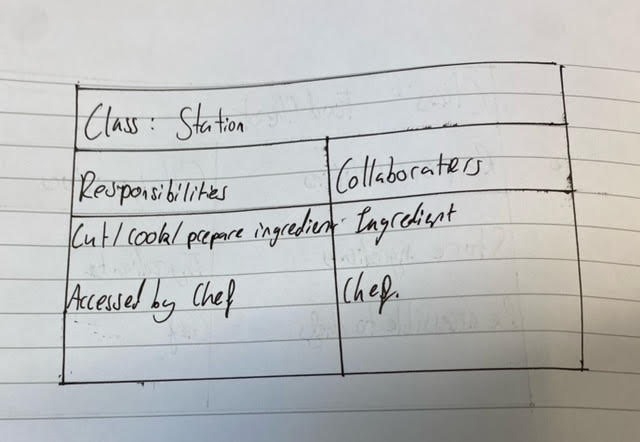 Class: Station
Responsibilities Collaborators
Cut/cook/prepare ingredient Ingredient
Accessed by Chef Chef.